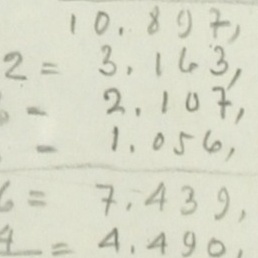 10.897,
2 = 3.163,
- 2.107,
- 1.056,
6 = 7.439,
4 = 4.490,